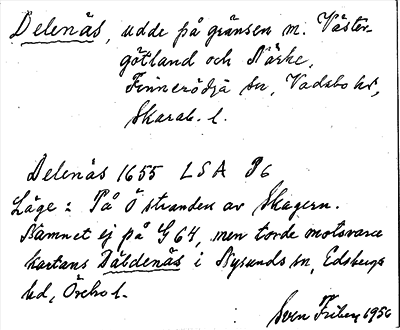 Delenäs, udde på gränsen m. Väster-
götland och Närke,
Finnerödja sn, Vadsbo hd,
Skarab. l.
Delenäs 1655 LSA P6
Läge: På Östranden av Skagern.
Namnet ej på G 64, men torde motsvara
kartans Däldenäs i Nysunds sn, Edsbergs
hd, Örebro l.
Sven Friberg 1956